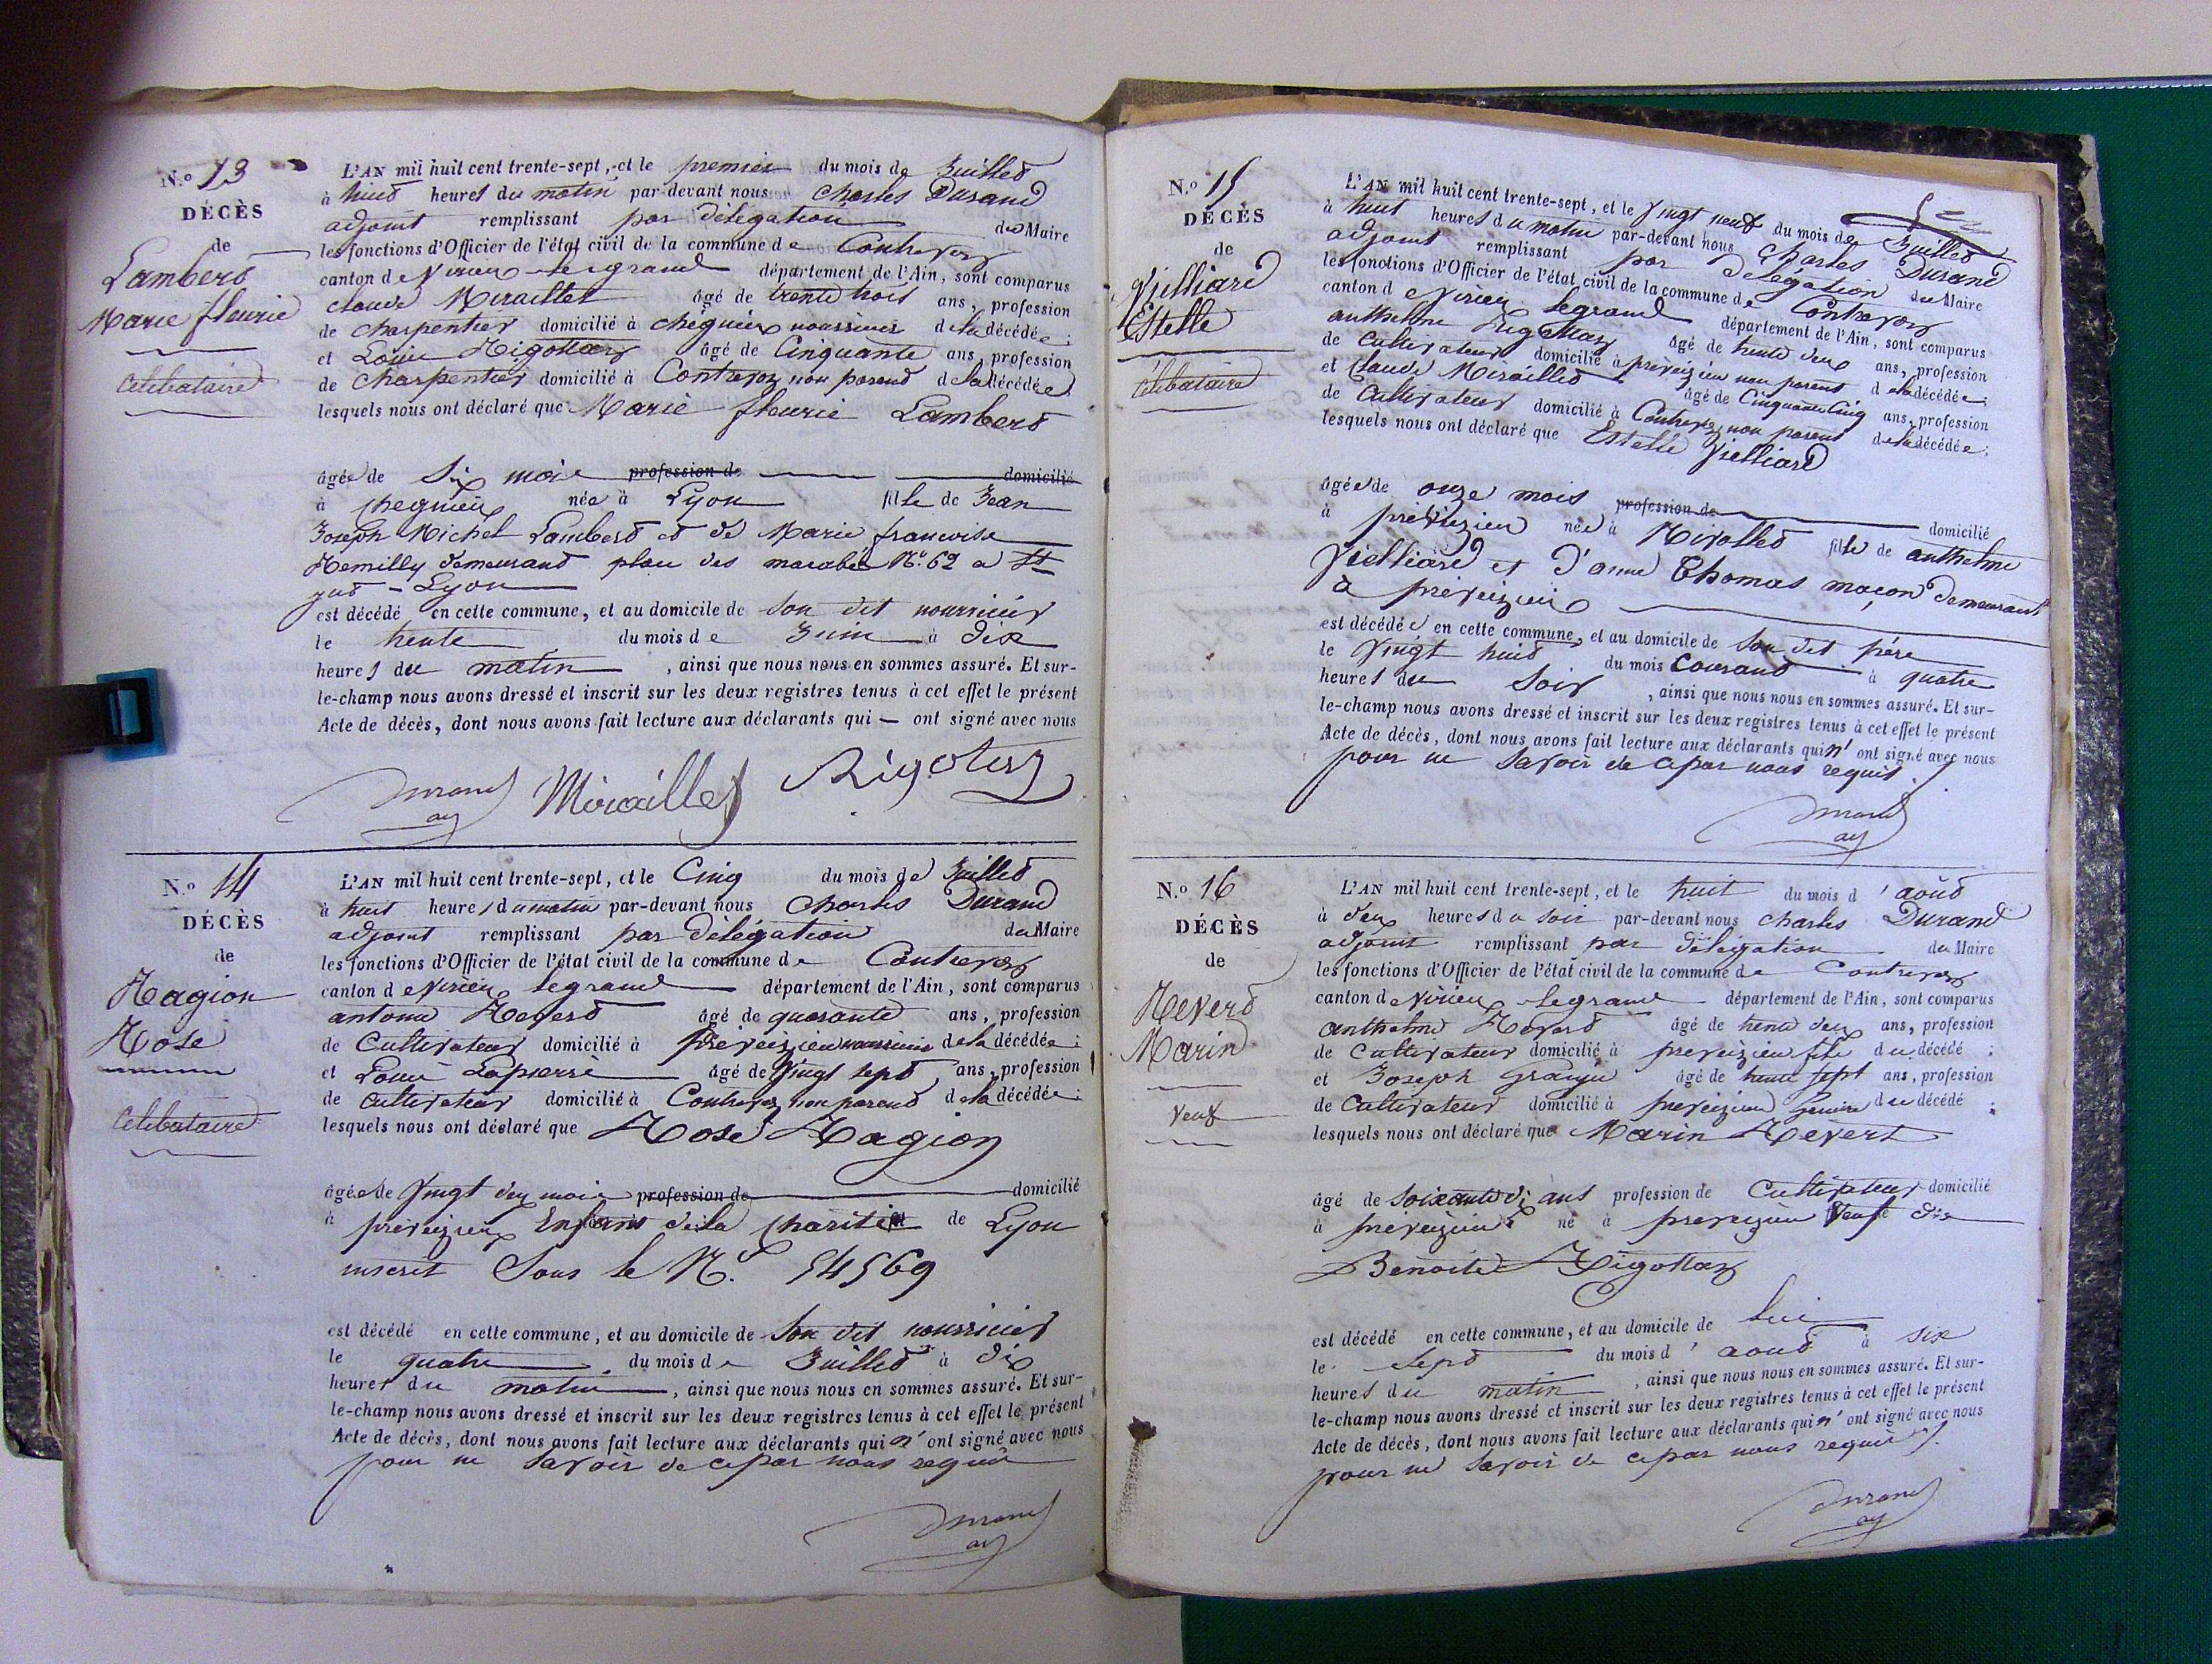 N.o 13
DÉCÈS
de
Lambert
Marie fleurie
Celibataire
L'AN mil huit cent trente-sept, et le premier du mois de Juillet
à huit heures du matin par-devant nous Charles Durand
adjoint remplissant par délégation du Maire
les fonctions d'Officier de l'état civil de la commune de Contrevoz
canton de Virieu-le grand département de l'Ain, sont comparus
claude Miraillet âgé de trente trois ans, profession
de charpentier domicilié à chégnieu nourricier de la décédée;
et Louis Rigottaz âgé de Cinquante ans, profession
de charpentier domicilié à Contrevoz non parent de la décédée
lesquels nous ont déclaré que Marie fleurie Lambert
âgée de Six mois profession de domicilié
à chegnieu née à Lyon fille de Jean
Joseph Michel Lambert et de Marie francoise
Remilly demeurant place des N.o 62 a St
- Lyon
est décédé en cette commune, et au domicile de son dit nourricier
le trente du mois de Juin à dix
heures du matin, ainsi que nous nous en sommes assuré. Et sur-
le-champ nous avons dressé et inscrit sur les deux registres tenus à cet effet le présent
Acte de décès, dont nous avons fait lecture aux déclarants qui — ont signé avec nous
Durand adj Miraillet Rigotaz
N.o 14
DÉCÈS
de
Ragion
Rose
Celibataire
L'AN mil huit cent trente-sept, et le Cinq du mois de Juillet
à huit heures du matin par-devant nous Charles Durand
adjoint remplissant par délégation du Maire
les fonctions d'Officier de l'état civil de la commune de Contrevoz
canton de Virieu le grand département de l'Ain, sont comparus
antoine Revert âgé de quarante ans, profession
de Cultivateur domicilié à preveizieu nourricier de la décédée;
et Louis Lapierre âgé de Vingt sept ans, profession
de Cultivateur domicilié à Contrevoz non parent de la décédée;
lesquels nous ont déclaré que Rose Ragion
âgée de Vingt deux mois profession de domicilié
à preveizieu Enfant de la charité de Lyon
inscrit Sous le N.o 54569
est décédé en cette commune, et au domicile de Son dit nourricier
le quatre du mois de Juillet à dix
heures du matin, ainsi que nous nous en sommes assuré. Et sur-
le-champ nous avons dressé et inscrit sur les deux registres tenus à cet effet le présent
Acte de décès, dont nous avons fait lecture aux déclarants qui n' ont signé avec nous
pour ne Savoir de ce par nous requis
Durand
adj
N.o 15
DÉCÈS
de
Vielliard
Estelle
Célibataire
L'AN mil huit cent trente-sept, et le Vingt neuf du mois de Juillet
à huit heures du matin par-devant nous Charles Durand
adjoint remplissant par délégation du Maire
les fonctions d'Officier de l'état civil de la commune de Contrevoz
canton de Virieu le grand département de l'Ain, sont comparus
anthelme Rigottaz âgé de trente deux ans, profession
de Cultivateur domicilié à preveizieu non parent de la décédée;
et Claude Miraillet âgé de Cinquante Cinq ans, profession
de Cultivateur domicilié à Contrevoz non parent de la décédée;
lesquels nous ont déclaré que Estelle Vielliard
âgée de onze mois profession de domicilié
à preveizieu née à fille de anthelme
Vielliard et d'anne Thomas maçon demeurant
a preveizieu
est décédée en cette commune, et au domicile de Son dit père
le Vingt huit du mois Courant à quatre
heures du Soir, ainsi que nous nous en sommes assuré. Et sur-
le-champ nous avons dressé et inscrit sur les deux registres tenus à cet effet le présent
Acte de décès, dont nous avons fait lecture aux déclarants qui n' ont signé avec nous
pour ne Savoir de ce par nous requis
Durand
adj
N.o 16
DÉCÈS
de
Revert
Marin
Veuf
L'AN mil huit cent trente-sept, et le huit du mois d'août
à deux heures du Soir par-devant nous charles Durand
adjoint remplissant par délégation du Maire
les fonctions d'Officier de l'état civil de la commune de Contrevoz
canton de Virieu-le grand département de l'Ain, sont comparus
anthelme Revert âgé de trente deux ans, profession
de Cultivateur domicilié à preveizieu fils du décédé;
et Joseph Grangé âgé de trente sept ans, profession
de Cultivateur domicilié à preveizieu du décédé;
lesquels nous ont déclaré que Marin Revert
âgé de Soixante di ans profession de Cultivateur domicilié
à preveizieu né à preveizieu Veuf de
Benoite Rigottaz
est décédé en cette commune, et au domicile de lui
le Sept du mois d'aout à six
heures du matin, ainsi que nous nous en sommes assuré. Et sur-
le-champ nous avons dressé et inscrit sur les deux registres tenus à cet effet le présent
Acte de décès, dont nous avons fait lecture aux déclarants qui n' ont signé avec nous
pour ne Savoir de ce par nous requis
Durand
adj